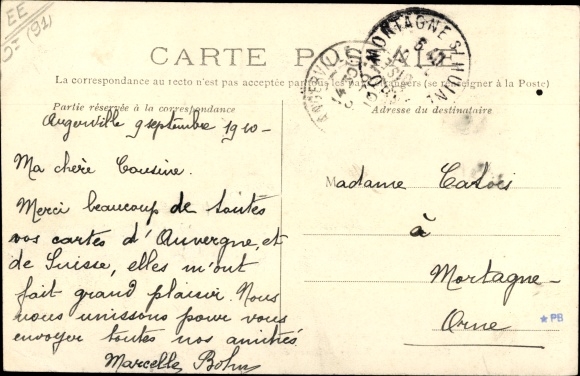 EE
(91)
CARTE POSTALE
La correspondance au recto n'est pas acceptée par tous les pays étrangers (se renseigner à la Poste)
Partie réservée à la correspondance
Adresse du destinataire
MORTAGNE-S-HUINE
ANGERVILLE
Angerville 9 septembre 1910 -
Ma chère Cousine.
Merci beaucoup de toutes
vos cartes d'Auvergne, et
de Suisse, elles m'ont
fait grand plaisir. Nous
nous unissons pour vous
envoyer toutes nos amitiés
Marcelle
Madame Catois
à
Mortagne -
Orne
*PB